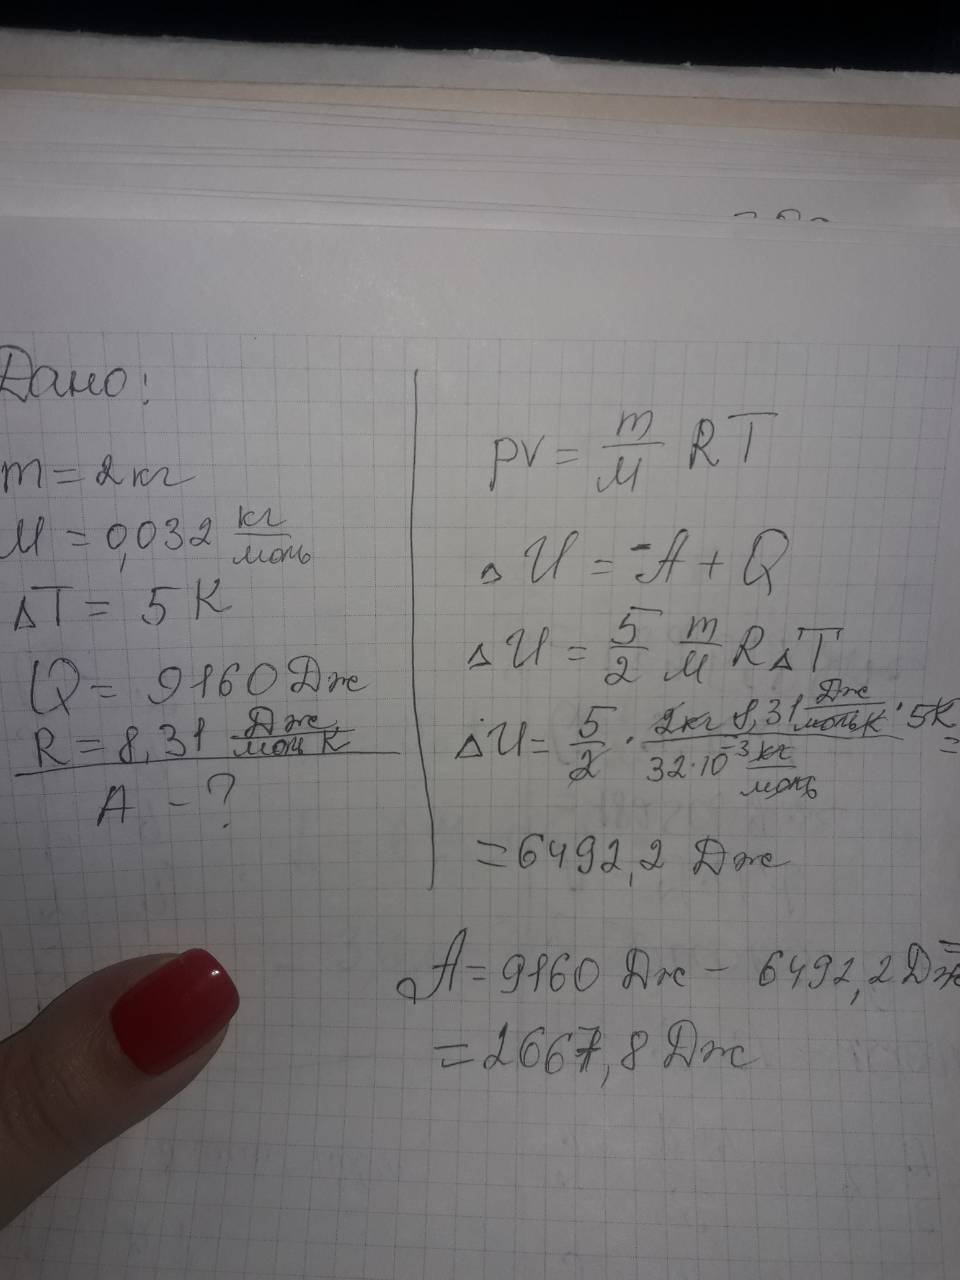 Дано:
m = 2 кг
M = 0,032 кг/моль
ΔT = 5 К
Q = 9160 Дж
R = 8,31 Дж/моль К
A - ?
pV = m/M RT
ΔU = -A + Q
ΔU = 5/2 m/M RΔT
ΔU = 5/2 · 2кг 8,31 Дж/моль К · 5К / 32·10⁻³ кг/моль =
= 6492,2 Дж
A = 9160 Дж - 6492,2 Дж =
= 2667,8 Дж